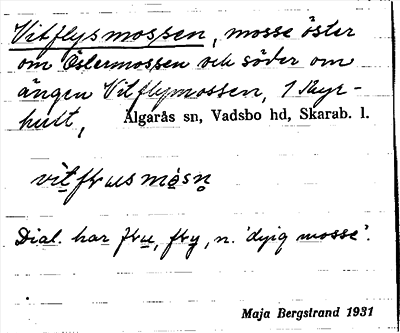 Vitflysmossen, mosse öster
om Östermossen och söder om
ängen Vitflymossen, 1 Kyr-
hult,
Älgarås sn, Vadsbo hd, Skarab. l.
Dial. har flu, fly, n. 'dyig mosse'.
Maja Bergstrand 1931